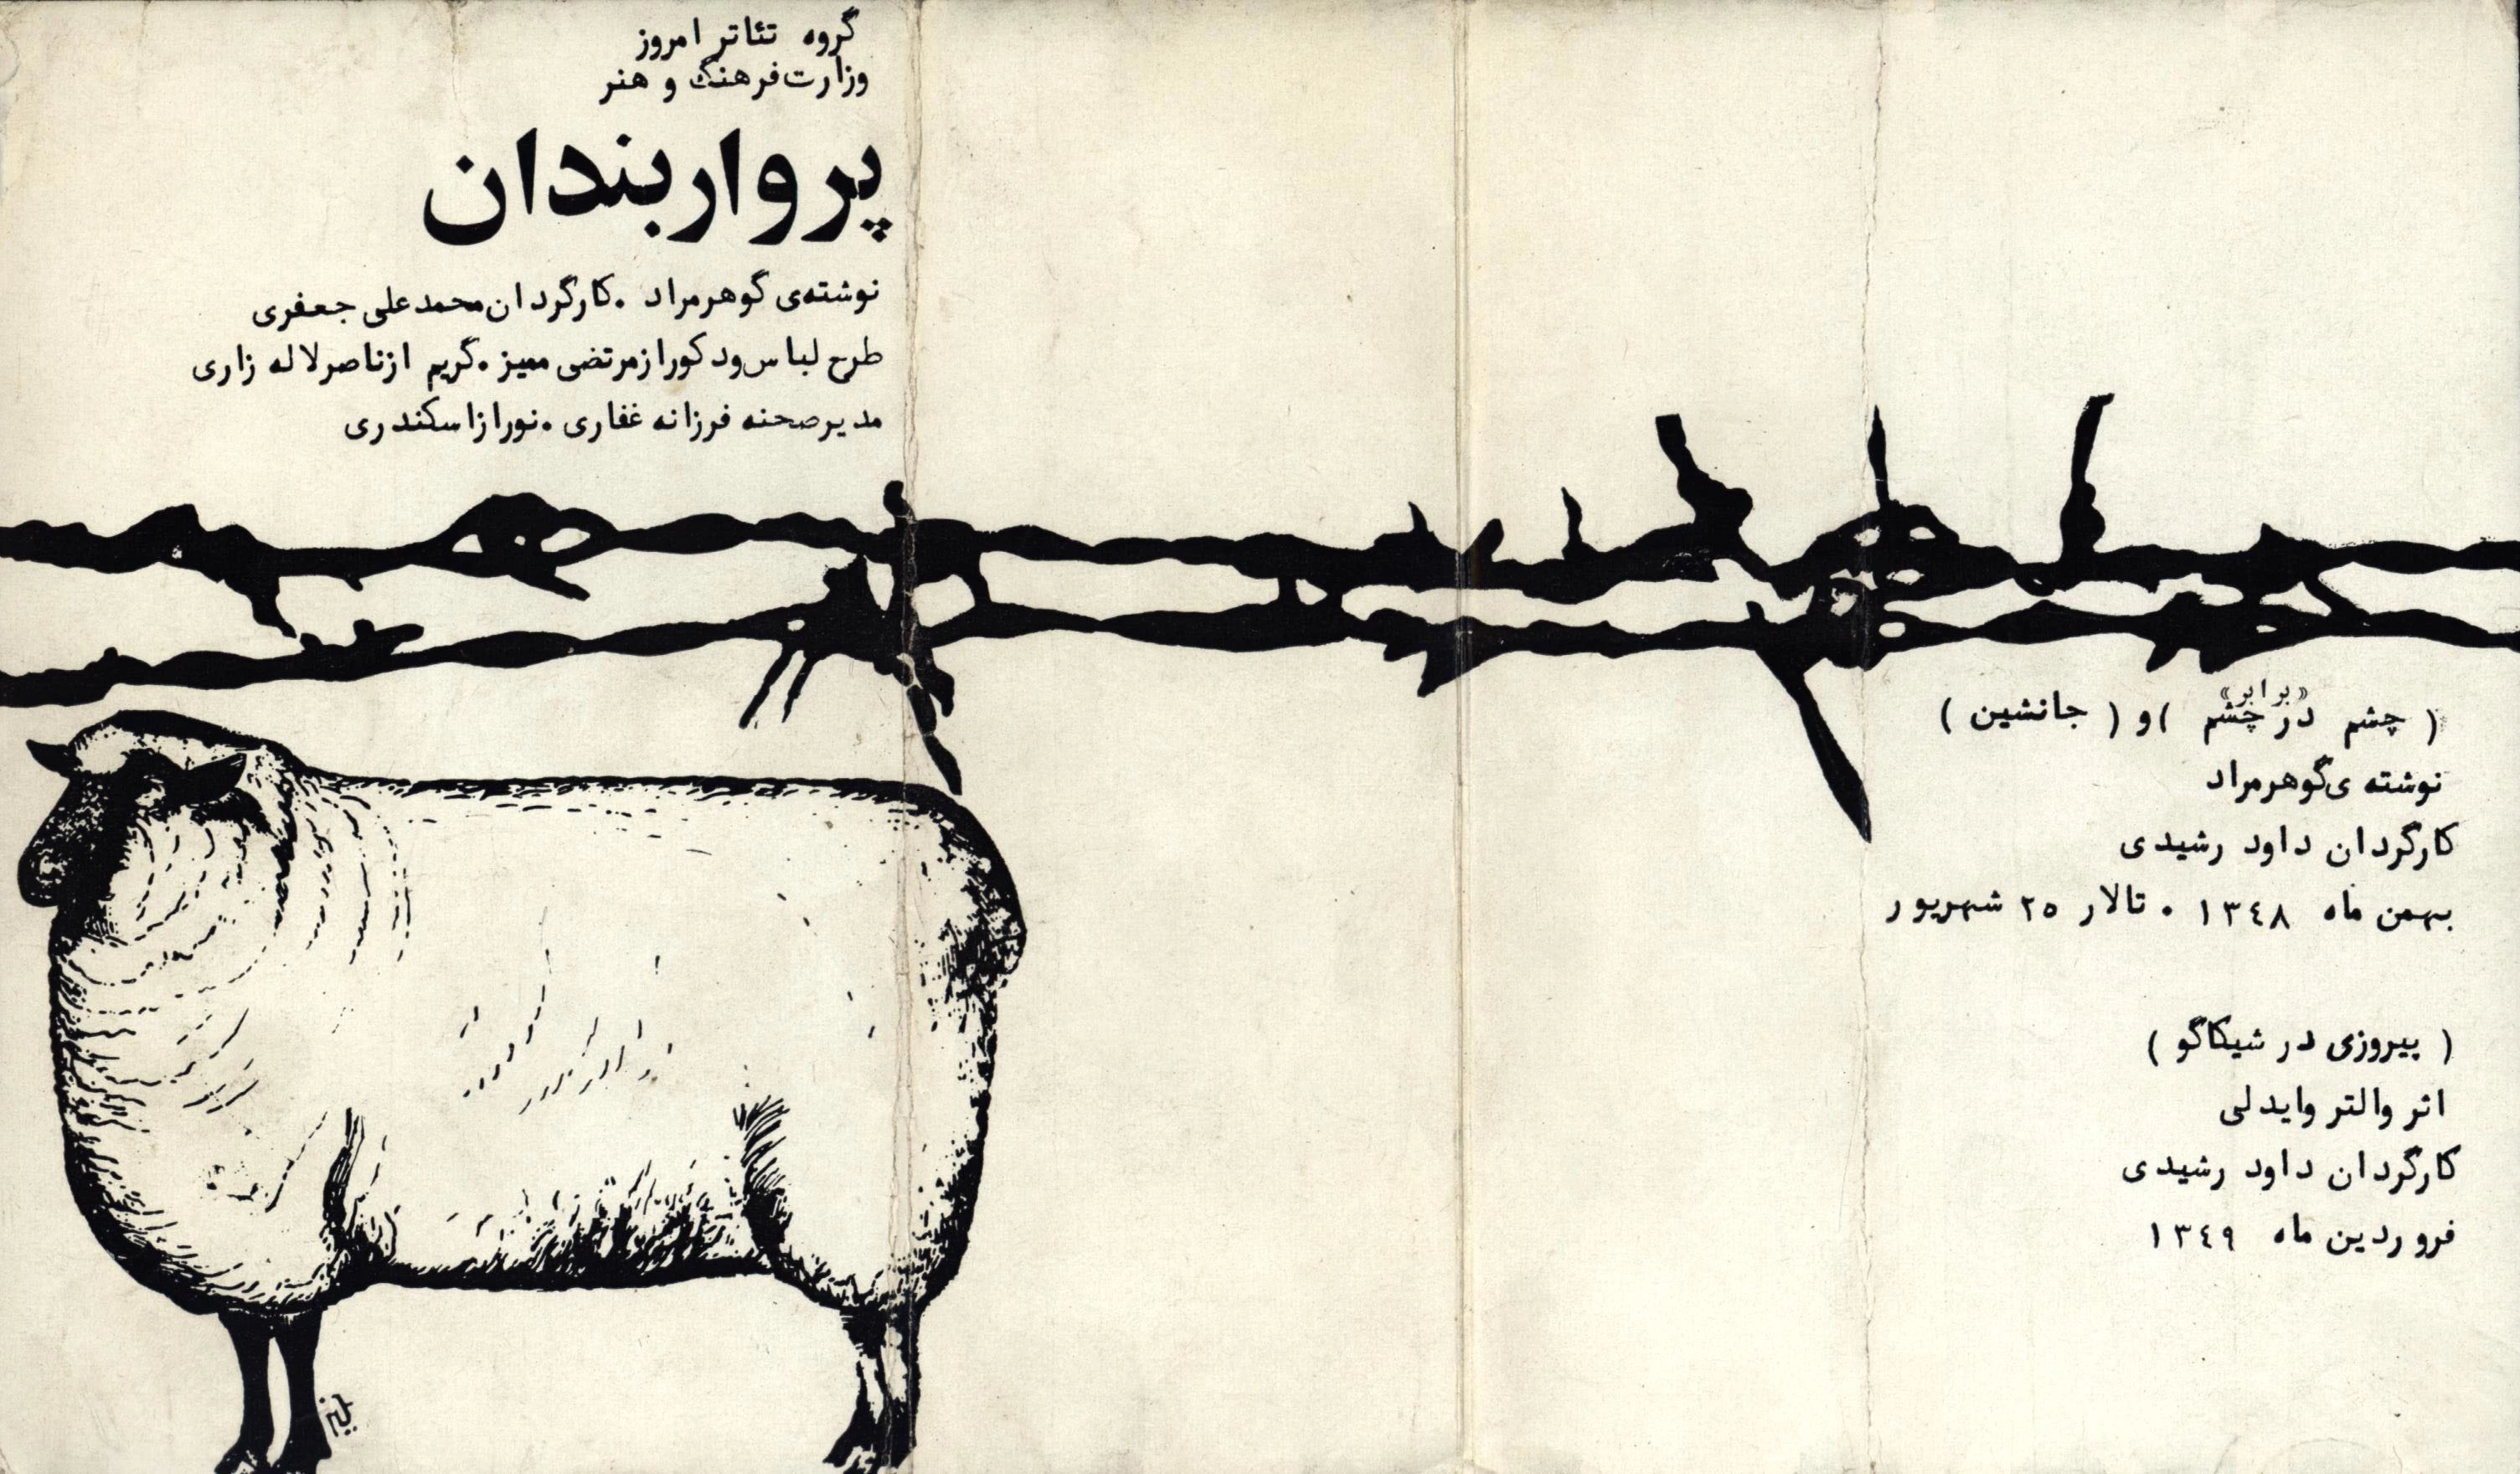 گروه تئاتر امروز
وزارت فرهنگ و هنر
پرواربندان
نوشته‌ی گوهرمراد . کارگردان محمدعلی جعفری
طرح لباس ودکور از مرتضی ممیز . گریم از ناصر لاله زاری
مدیر صحنه فرزانه غفاری . نور از اسکندری
«برابر»
( چشم در چشم ) و ( جانشین )
نوشته ی گوهرمراد
کارگردان داود رشیدی
بهمن ماه ۱۳٤۸ . تالار ۲۵ شهریور
( پیروزی در شیکاگو )
اثر والتر وایدلی
کارگردان داود رشیدی
فروردین ماه ۱۳٤۹